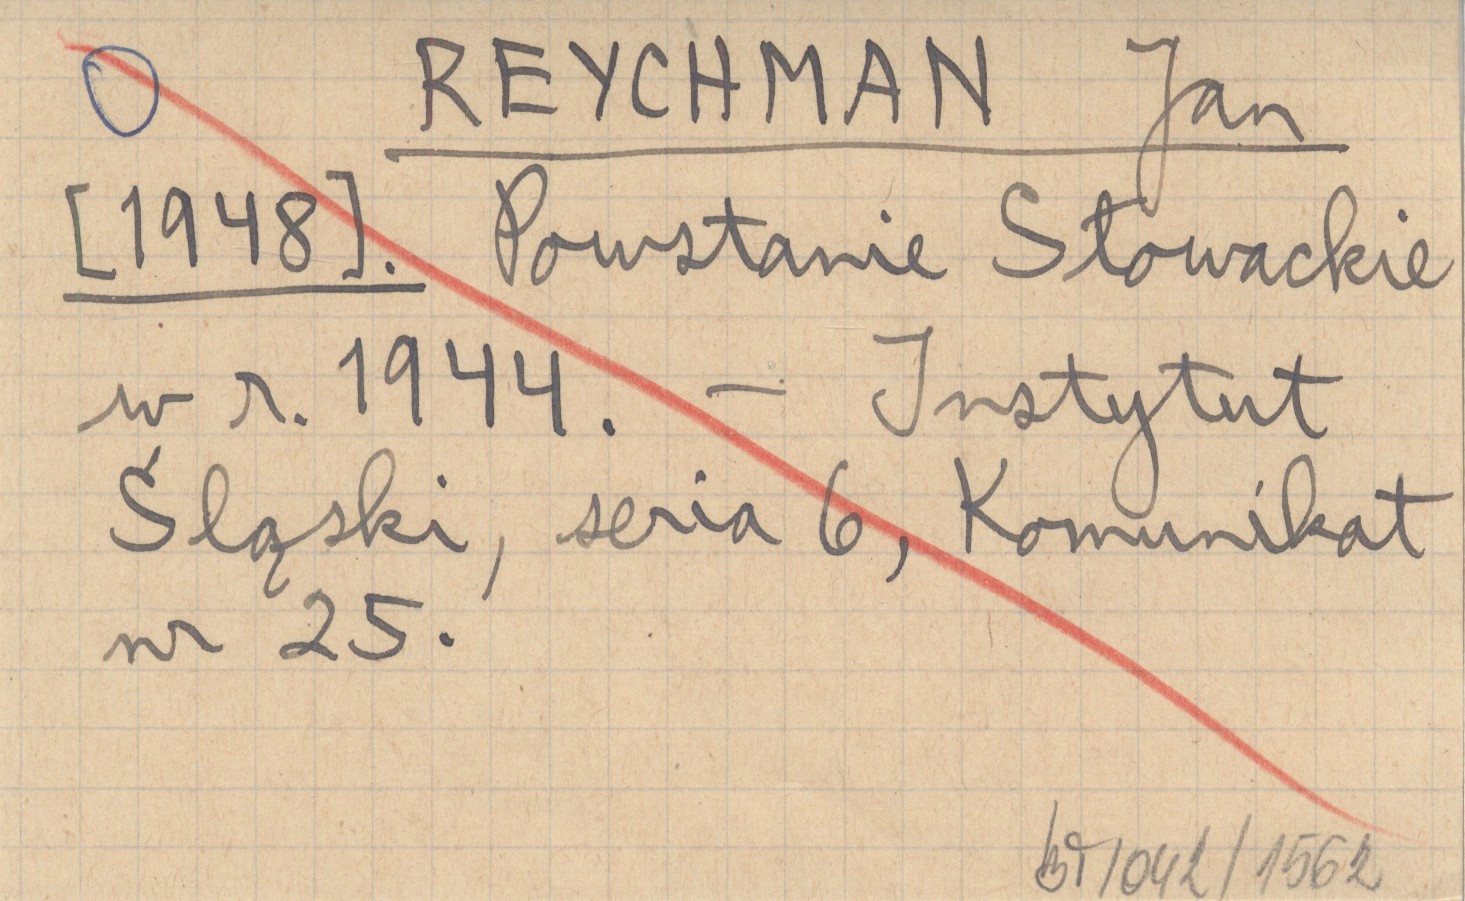 REYCHMAN Jan
[1948]. Powstanie Słowackie
w r. 1944. — Instytut
Śląski, seria 6, Komunikat
nr 25.
/042/1562